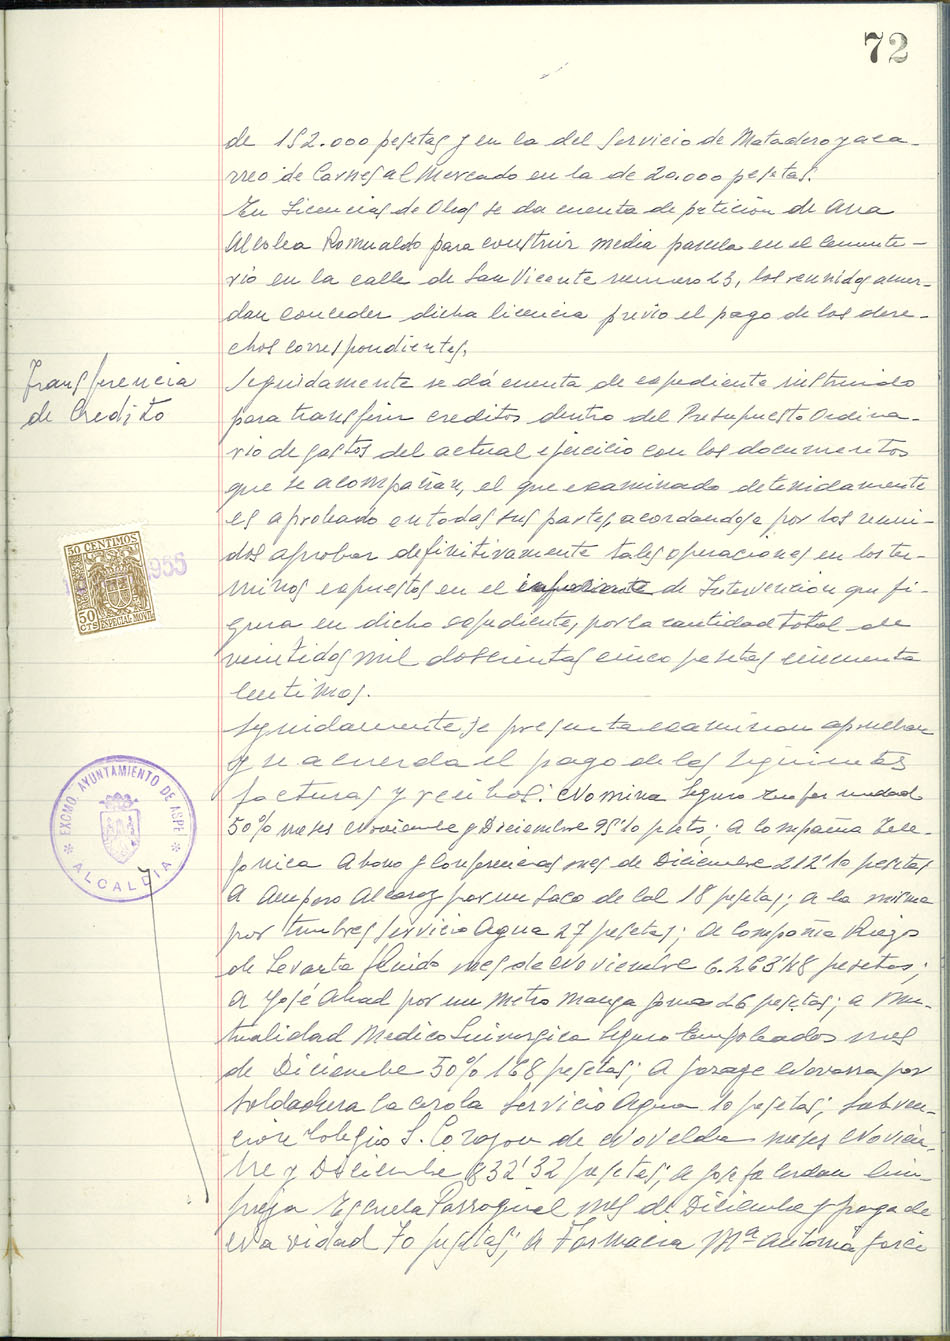 72
de 152.000 pesetas y en la del Servicio de Matadero y aca-
rreo de Carnes al Mercado en la de 20.000 pesetas.
En Licencias de Obras se da cuenta de petición de Ana
Alcolea Romualdo para construir media parcela en el Cemente-
rio en la calle de San Vicente numero 23, los reunidos acuer-
dan conceder dicha licencia previo el pago de los dere-
chos correspondientes.
Transferencia
de Credito
Seguidamente se dá cuenta de expediente instruido
para transferir creditos dentro del Presupuesto Ordina-
rio de gastos del actual ejercicio con los documentos
que se acompañan, el que examinado detenidamente
es aprobado en todas sus partes, acordandose por los reuni-
dos aprobar definitivamente tales operaciones en los ter-
minos expuestos en el de Intervención que fi-
gura en dicho expediente, por la cantidad total de
veintidos mil doscientas cinco pesetas cincuenta
centimos.
50 CENTIMOS
1955
50
CTS ESPECIAL MOVIL
Seguidamente se presenta examinan aprueban
y se acuerda el pago de las siguientes
facturas y recibos: Nomina Seguro Enfermedad
50% meses Noviembre y Diciembre 95'10 ptas; A Compañia Tele-
fonica Abono y Conferencias mes de Diciembre 212'10 pesetas
A Amparo Alcaraz por un saco de cal 18 pesetas; a la misma
por timbres Servicio Agua 27 pesetas; A Compañia Riegos
de Levante fluido mes de Noviembre 6.263'48 pesetas;
A José Abad por un metro manga goma 26 pesetas; a Mu-
tualidad Medico Quirurgica Seguro Empleados mes
de Diciembre 50% 168 pesetas; A garage Navarra por
soldadura Servicio Agua 10 pesetas; Subven-
cion Colegio S. Corazon de Novelda meses Noviem-
bre y Diciembre 832'32 pesetas; a Josefa Cerdan lim-
pieza Escuela Parroquial mes de Diciembre y paga de
Navidad 70 pesetas; A Farmacia Mª Antonia Garci
EXCMO. AYUNTAMIENTO DE ASPE
* ALCALDIA *